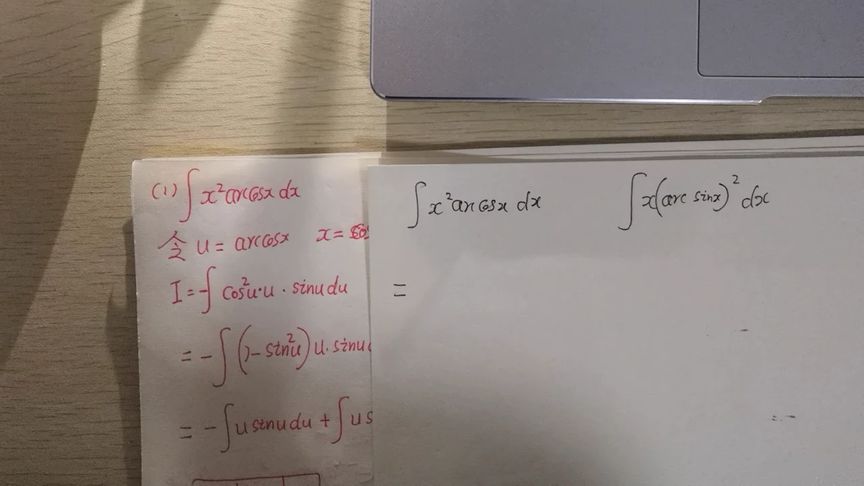 (1) ∫ x² arccosx dx
令 u = arccosx x =
I = -∫ cos²u · u · sinu du
= -∫ (1 - sin²u) u · sinu
= -∫ u sinu du + ∫ u s
∫ x² arccosx dx ∫ x(arc sinx)² dx
=